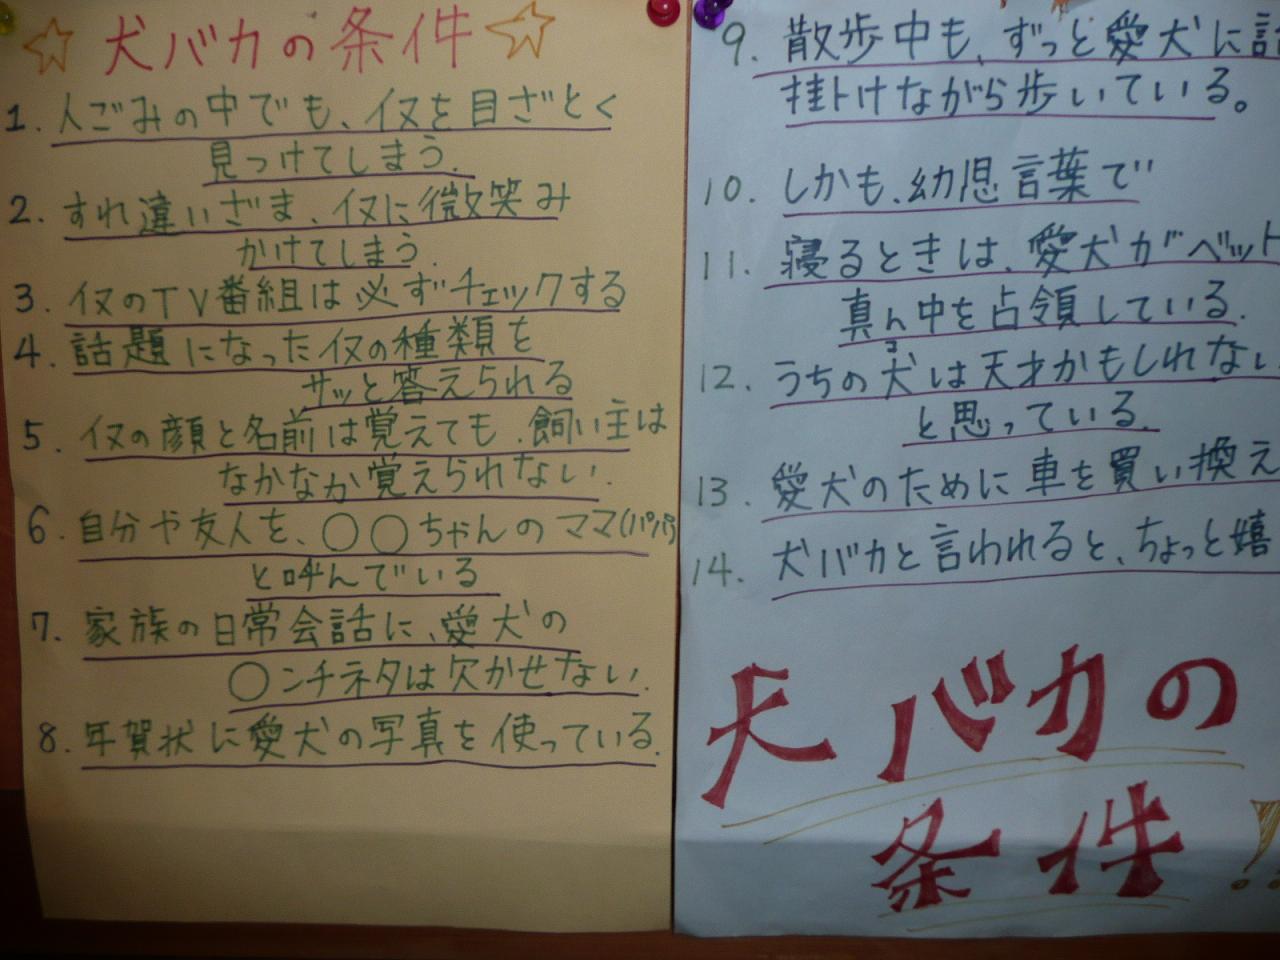 ☆犬バカの条件☆
1. 人ごみの中でも、イヌを目ざとく
見つけてしまう.
2. すれ違いざま、イヌに微笑み
かけてしまう.
3. イヌのTV番組は必ずチェックする
4. 話題になったイヌの種類を
サッと答えられる
5. イヌの顔と名前は覚えても.飼い主は
なかなか覚えられない.
6. 自分や友人を、〇〇ちゃんのママ(パパ)
と呼んでいる
7. 家族の日常会話に、愛犬の
〇ンチネタは欠かせない.
8. 年賀状に愛犬の写真を使っている.
9. 散歩中も、ずっと愛犬に話
掛けながら歩いている。
10. しかも、幼児言葉で
11. 寝るときは、愛犬がベット
真ん中を占領している.
12. うちの犬は天才かもしれない
コ
と思っている.
13. 愛犬のために車を買い換え
14. 犬バカと言われると、ちょっと嬉
犬バカの
条件